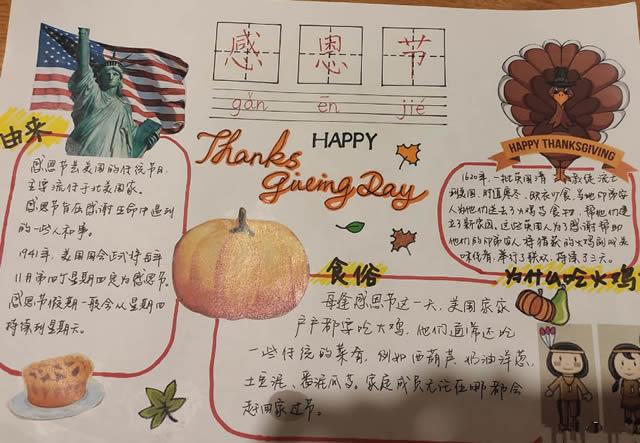 感恩节
gǎn ēn jié
HAPPY
Thanks
Giveing Day
HAPPY THANKSGIVING
由来
感恩节是美国的传统节日,
主要流行于北美国家。
感恩节旨在感谢生命中遇到
的一些人和事。
1941年,美国国会正式将每年
11月第四个星期四定为感恩节。
感恩节假期一般会从星期四
持续到星期天。
1620年,一批英国清教徒
到美国,时值寒冬,缺衣少食,当地印第安
人为他们送去了火鸡等食物,帮他们建
立了新家园。这些英国人为了感谢帮助
他们的印第安人,将猎获的火鸡制成美
味佳肴,举行了
为什么吃火鸡
食俗
每逢感恩节这一天,美国家家
户户都要吃火鸡,他们通常还吃
一些传统的菜肴,例如西葫芦、奶油洋葱、
土豆泥、番泥瓜等。家庭成员无论在哪都会
赶回家过节。